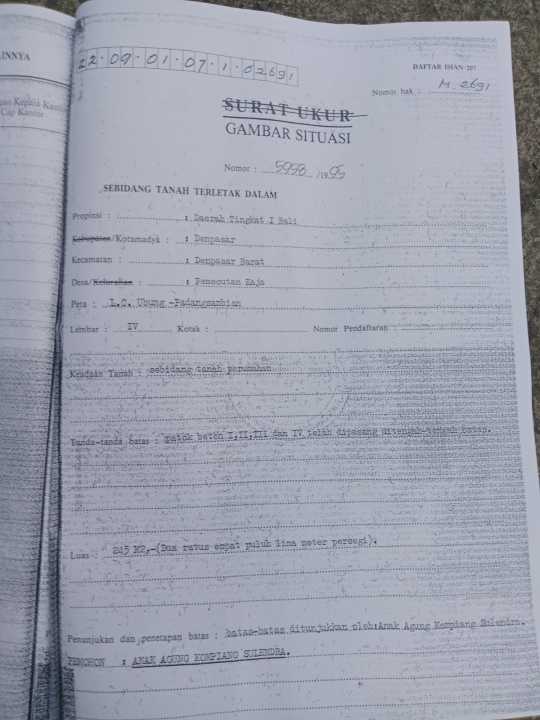 AINNYA
Kepala Kantor
Cap Kantor
22.09.01.07.1.02691
DAFTAR ISIAN 207
Nomor hak : M. 2691
SURAT UKUR
GAMBAR SITUASI
Nomor : 5998 /1995
SEBIDANG TANAH TERLETAK DALAM
Propinsi : : Daerah Tingkat I Bali
Kabupaten/Kotamadya : : Denpasar
Kecamatan : : Denpasar Barat
Desa/Kelurahan : : Pemecutan Kaja
Peta : L.C. Ubung -Padangsambian
Lembar : IV Kotak : Nomor Pendaftaran :
Keadaan Tanah : sebidang tanah perumahan
Tanda-tanda batas : patok beton I,II,III dan IV telah dipasang ditengah-tengah batas.
Luas : 245 M2,-(Dua ratus empat puluh lima meter persegi).
Penunjukan dan penetapan batas : batas-batas ditunjukkan oleh:Anak Agung Kompiang Sulendra.
PEMOHON : ANAK AGUNG KOMPIANG SULENDRA.